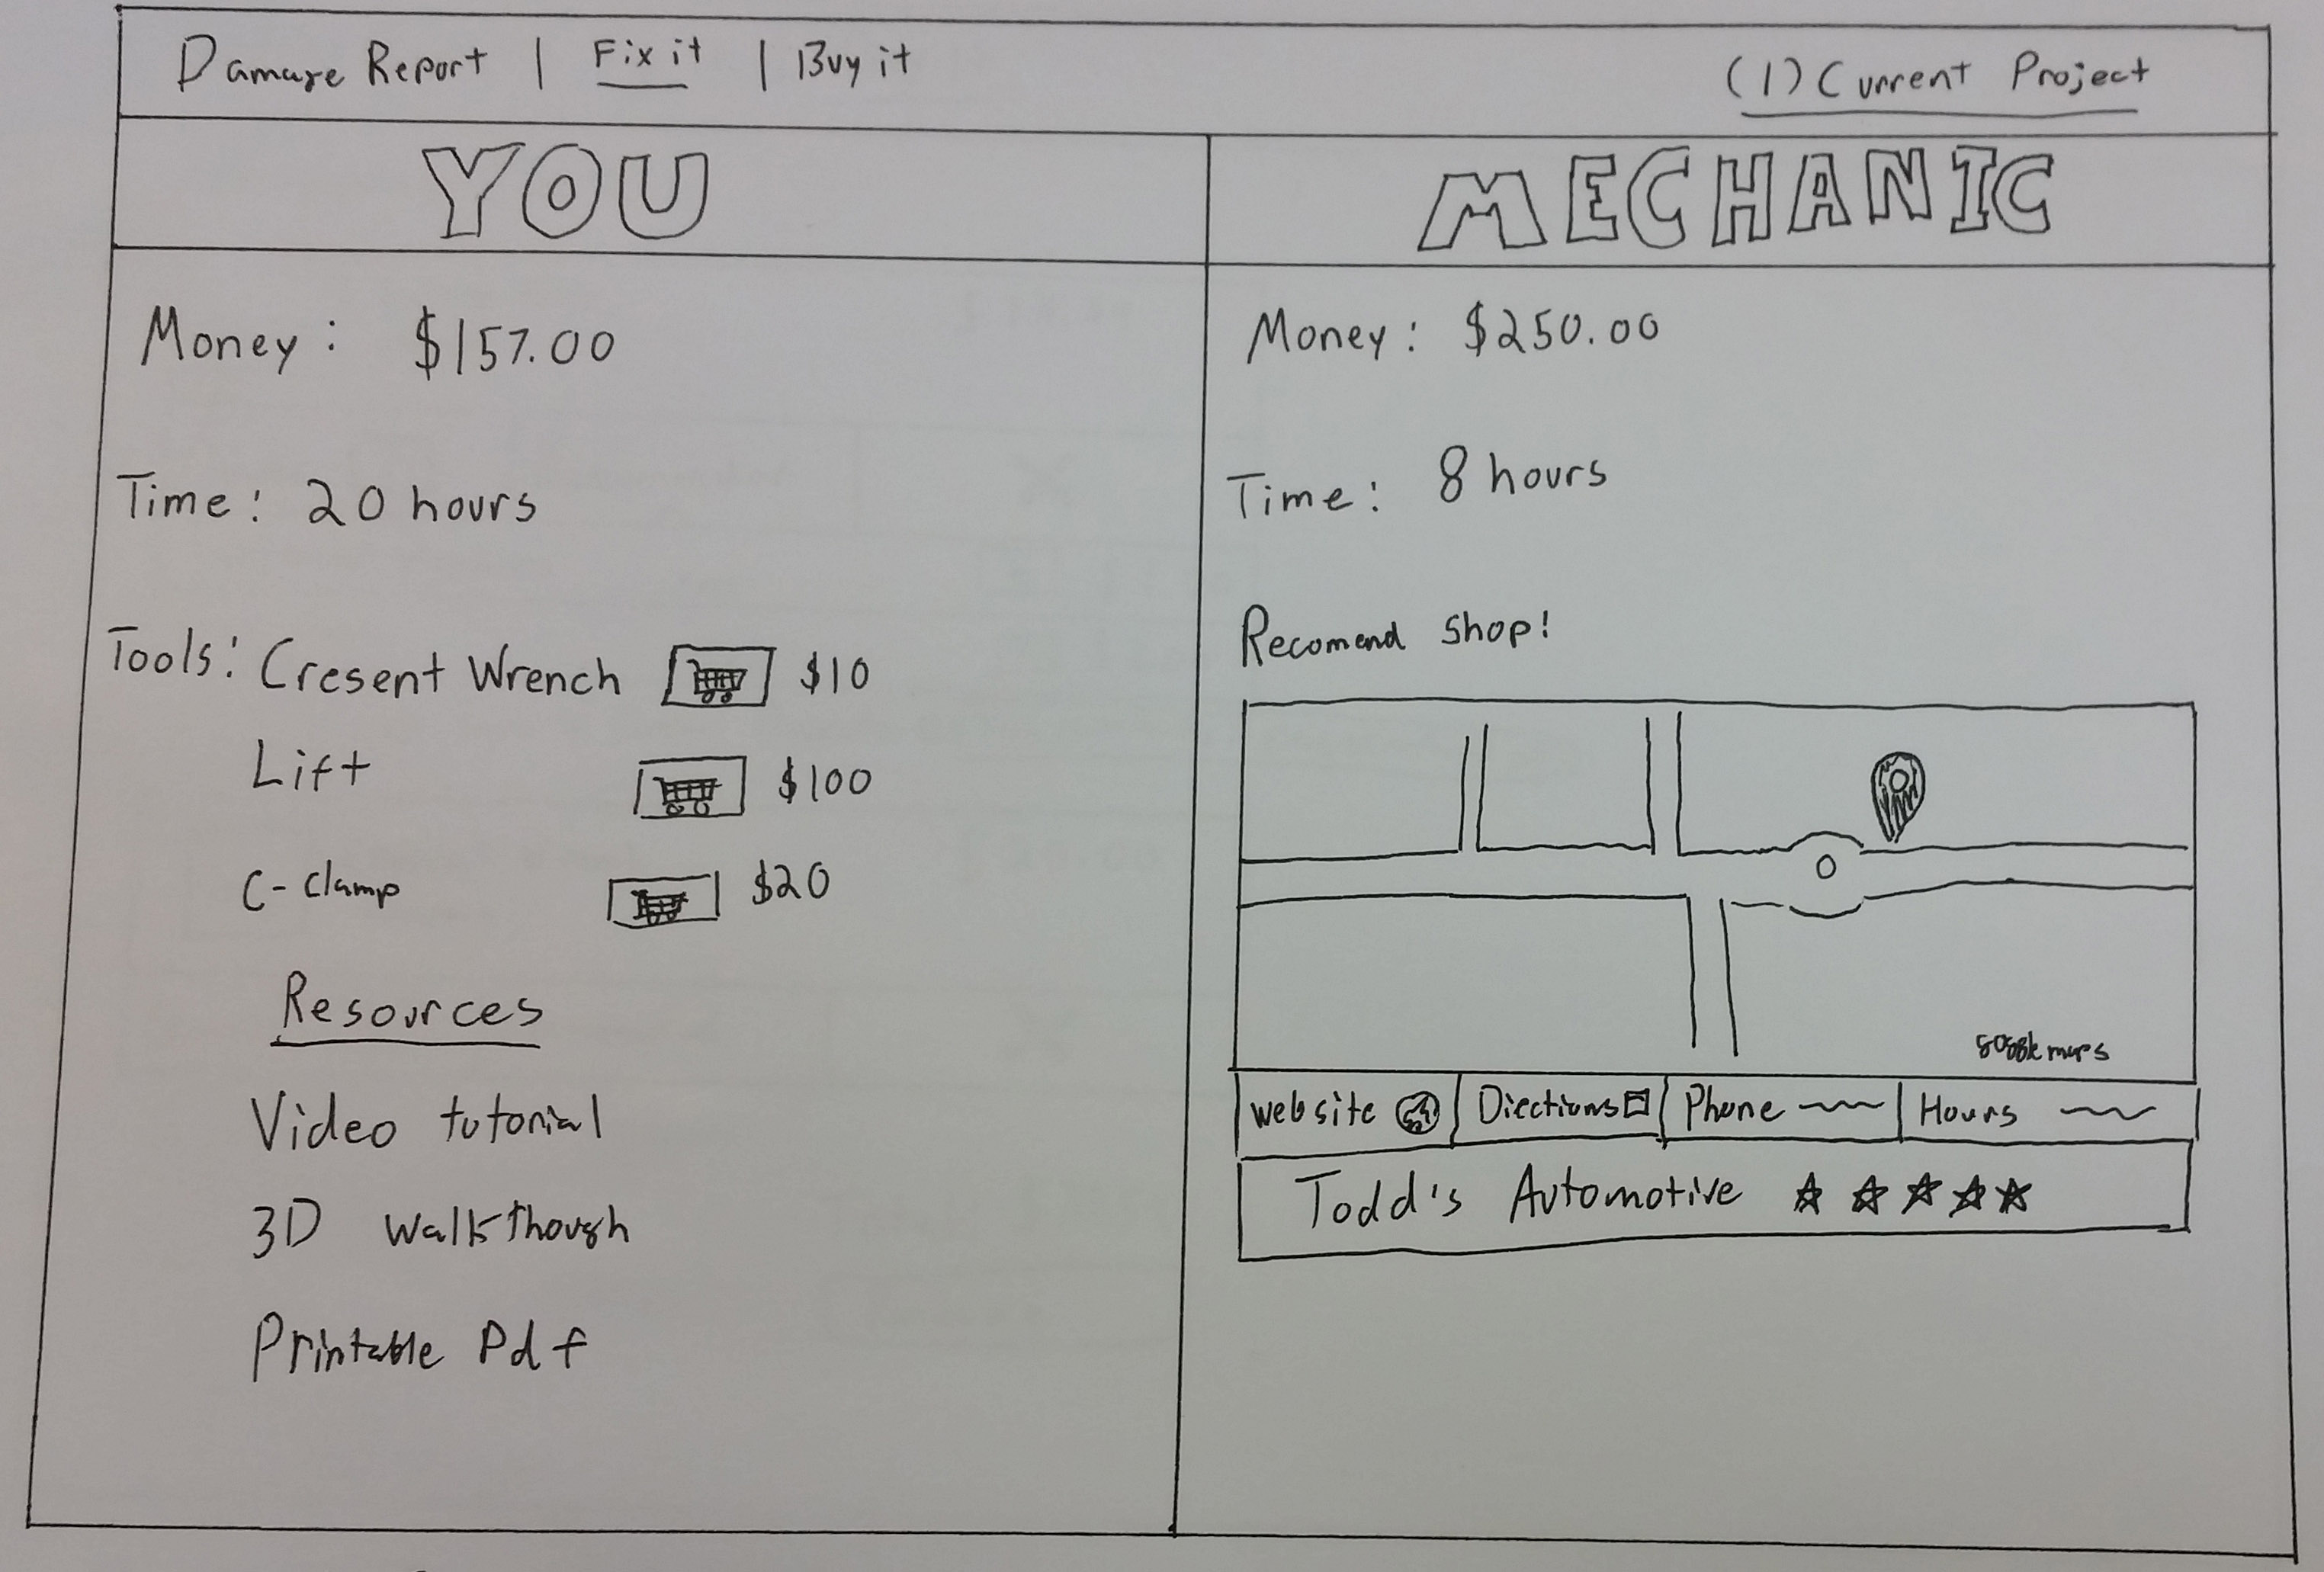 Damage Report | Fix it | Buy it
(1) Current Project
YOU
Money: $157.00
Time: 20 hours
Tools: Cresent Wrench $10
Lift $100
C-clamp $20
Resources
Video tutorial
3D walkthough
Printable Pdf
MECHANIC
Money: $250.00
Time: 8 hours
Recomend shop!
google maps
website
Diections
Phone
Hours
Todd's Automotive